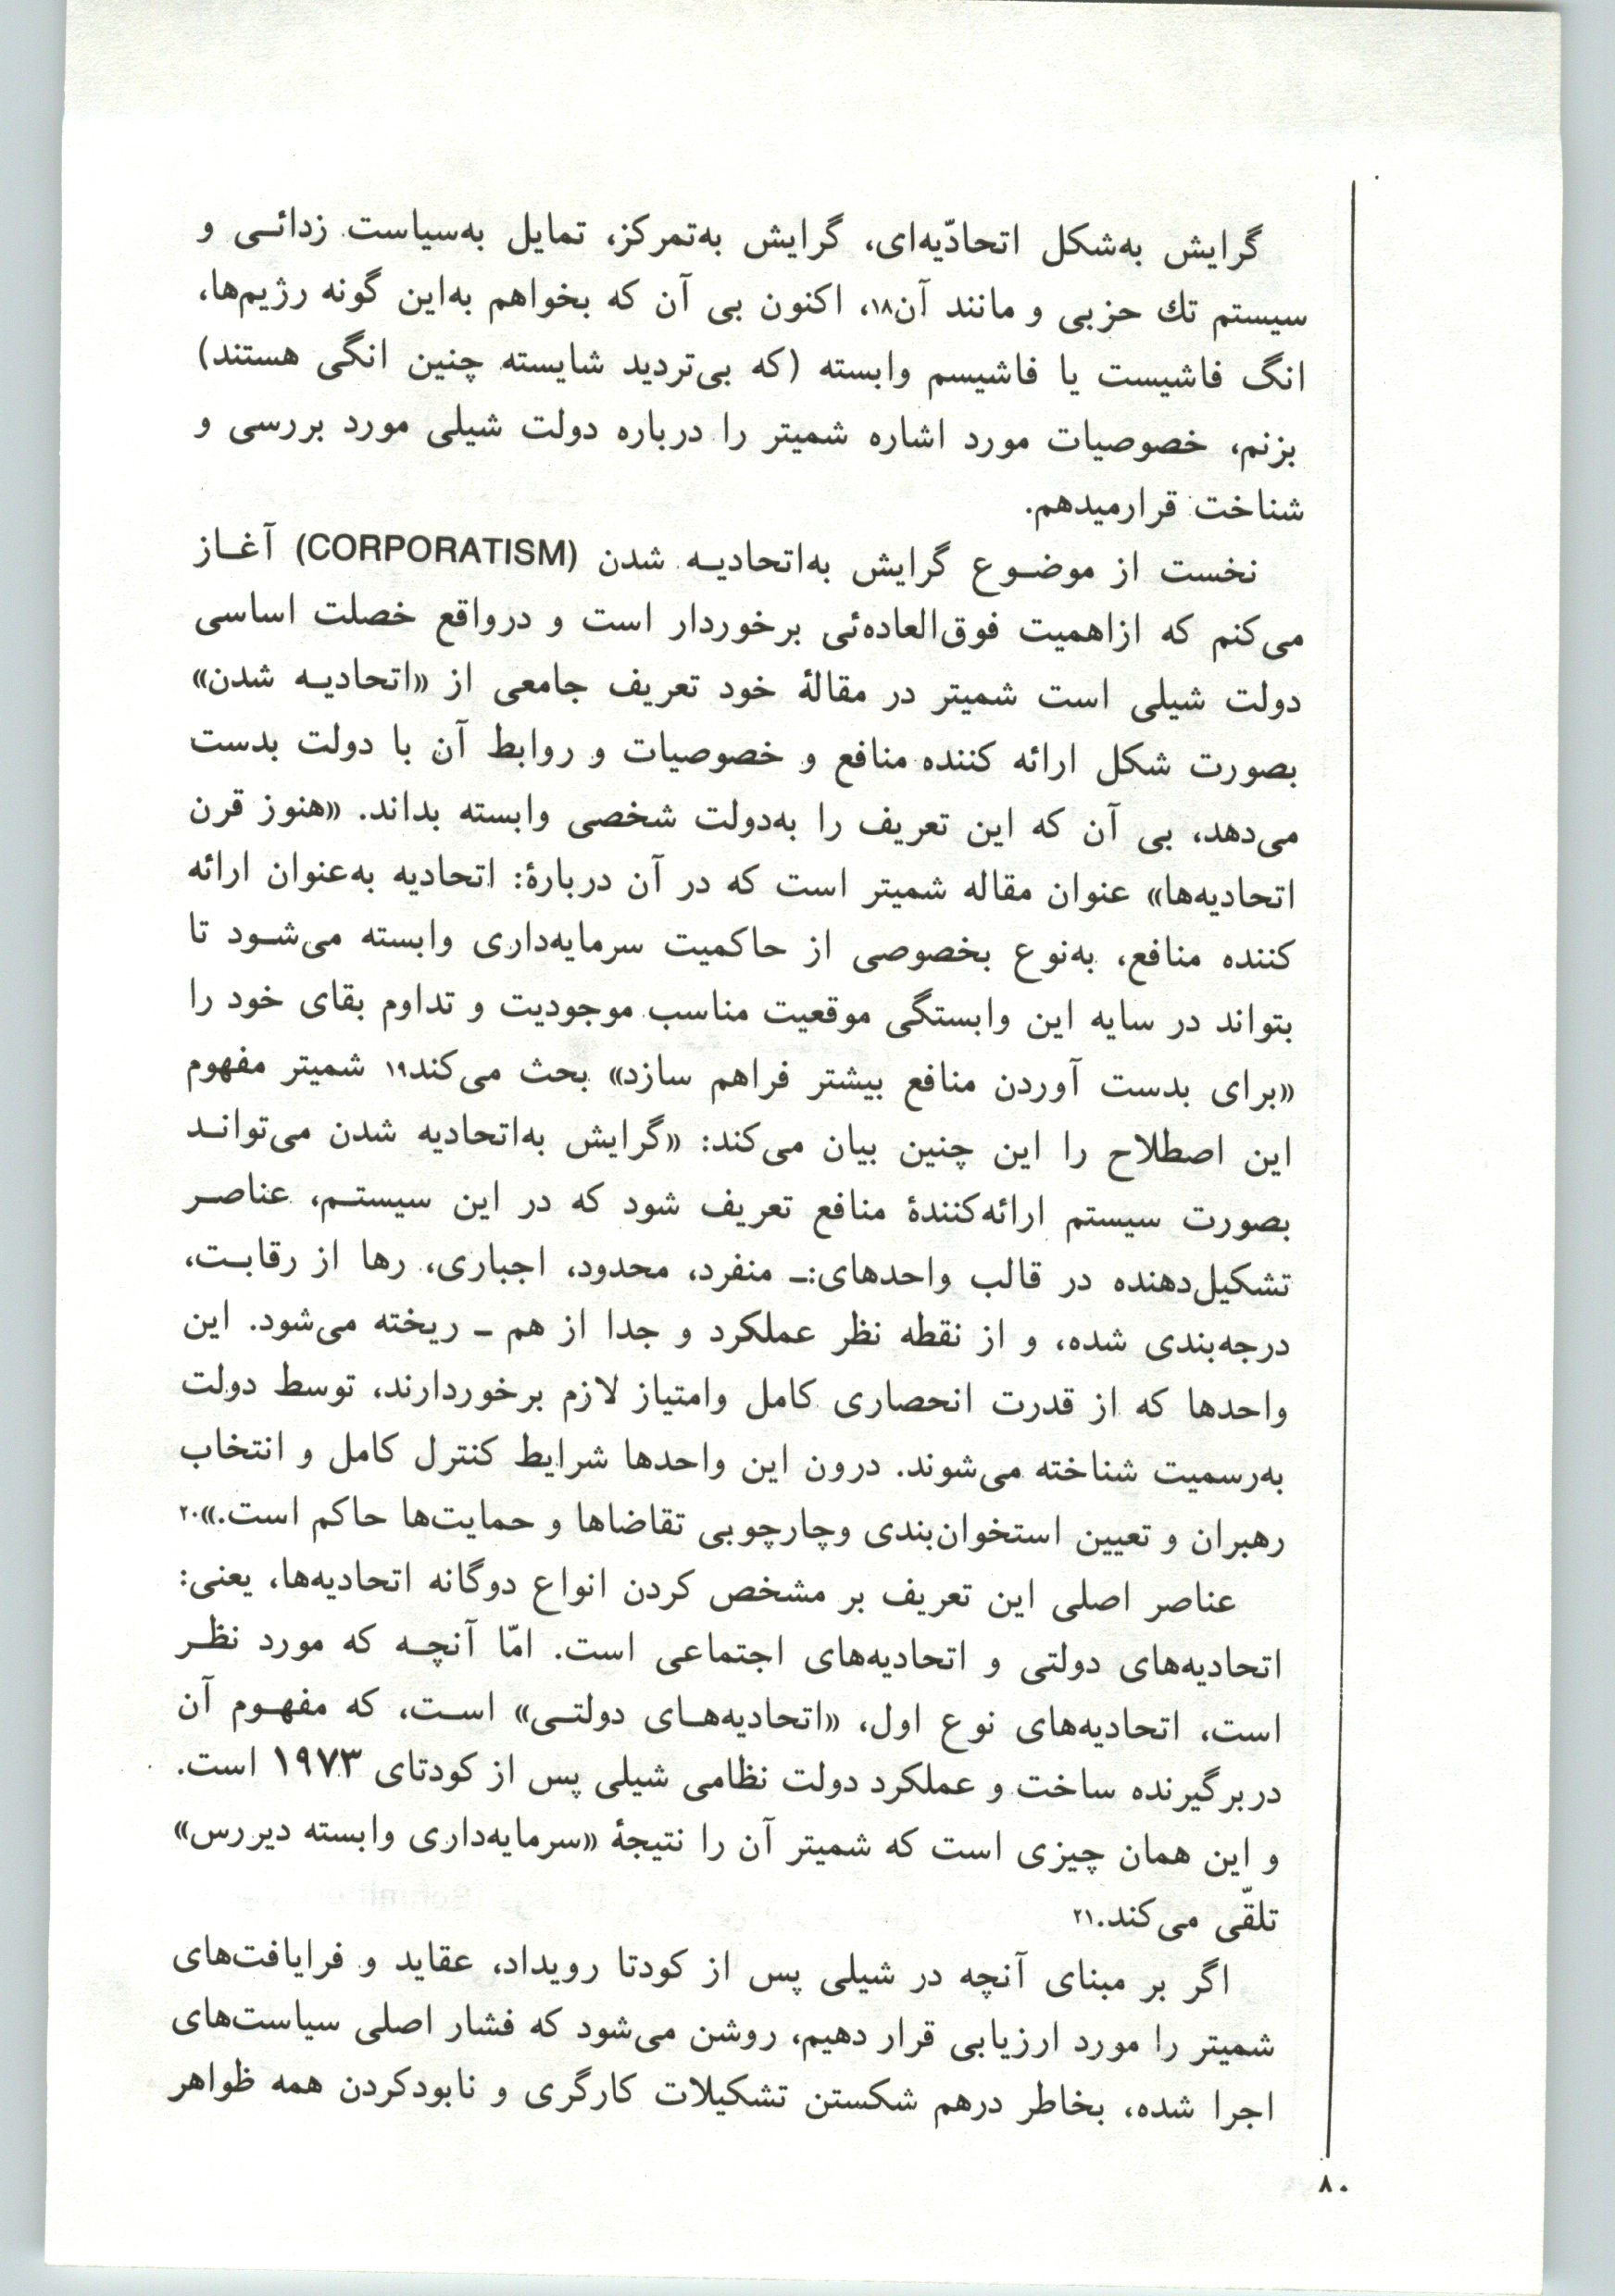 گرایش به‌شکل اتحادّیه‌ای، گرایش به‌تمرکز، تمایل به‌سیاست زدائـی و
سیستم تك حزبی و مانند آن۱۸، اکنون بی آن که بخواهم به‌این گونه رژیم‌ها،
انگ فاشیست یا فاشیسم وابسته (که بی‌تردید شایسته چنین انگی هستند)
بزنم، خصوصیات مورد اشاره شمیتر را درباره دولت شیلی مورد بررسی و
شناخت قرارمیدهم.
نخست از موضـوع گرایش به‌اتحادیـه شدن (CORPORATISM) آغـاز
می‌کنم که ازاهمیت فوق‌العاده‌ئی برخوردار است و درواقع خصلت اساسی
دولت شیلی است شمیتر در مقالهٔ خود تعریف جامعی از «اتحادیـه شدن»
بصورت شکل ارائه کننده منافع و خصوصیات و روابط آن با دولت بدست
می‌دهد، بی آن که این تعریف را به‌دولت شخصی وابسته بداند. «هنوز قرن
اتحادیه‌ها» عنوان مقاله شمیتر است که در آن دربارهٔ: اتحادیه به‌عنوان ارائه
کننده منافع، به‌نوع بخصوصی از حاکمیت سرمایه‌داری وابسته می‌شـود تا
بتواند در سایه این وابستگی موقعیت مناسب موجودیت و تداوم بقای خود را
«برای بدست آوردن منافع بیشتر فراهم سازد» بحث می‌کند۱۹ شمیتر مفهوم
این اصطلاح را این چنین بیان می‌کند: «گرایش به‌اتحادیه شدن می‌توانـد
بصورت سیستم ارائه‌کنندهٔ منافع تعریف شود که در این سیستـم، عناصـر
تشکیل‌دهنده در قالب واحدهای:ـ منفرد، محدود، اجباری، رها از رقابـت،
درجه‌بندی شده، و از نقطه نظر عملکرد و جدا از هم ـ ریخته می‌شود. این
واحدها که از قدرت انحصاری کامل وامتیاز لازم برخوردارند، توسط دولت
به‌رسمیت شناخته می‌شوند. درون این واحدها شرایط کنترل کامل و انتخاب
رهبران و تعیین استخوان‌بندی وچارچوبی تقاضاها و حمایت‌ها حاکم است.»۲۰
عناصر اصلی این تعریف بر مشخص کردن انواع دوگانه اتحادیه‌ها، یعنی:
اتحادیه‌های دولتی و اتحادیه‌های اجتماعی است. امّا آنچـه که مورد نظـر
است، اتحادیه‌های نوع اول، «اتحادیه‌هـای دولتـی» اسـت، که مفهـوم آن
دربرگیرنده ساخت و عملکرد دولت نظامی شیلی پس از کودتای ۱۹۷۳ است.
و این همان چیزی است که شمیتر آن را نتیجهٔ «سرمایه‌داری وابسته دیررس»
تلقّی می‌کند.۲۱
اگر بر مبنای آنچه در شیلی پس از کودتا رویداد، عقاید و فرایافت‌های
شمیتر را مورد ارزیابی قرار دهیم، روشن می‌شود که فشار اصلی سیاست‌های
اجرا شده، بخاطر درهم شکستن تشکیلات کارگری و نابودکردن همه ظواهر
۸۰